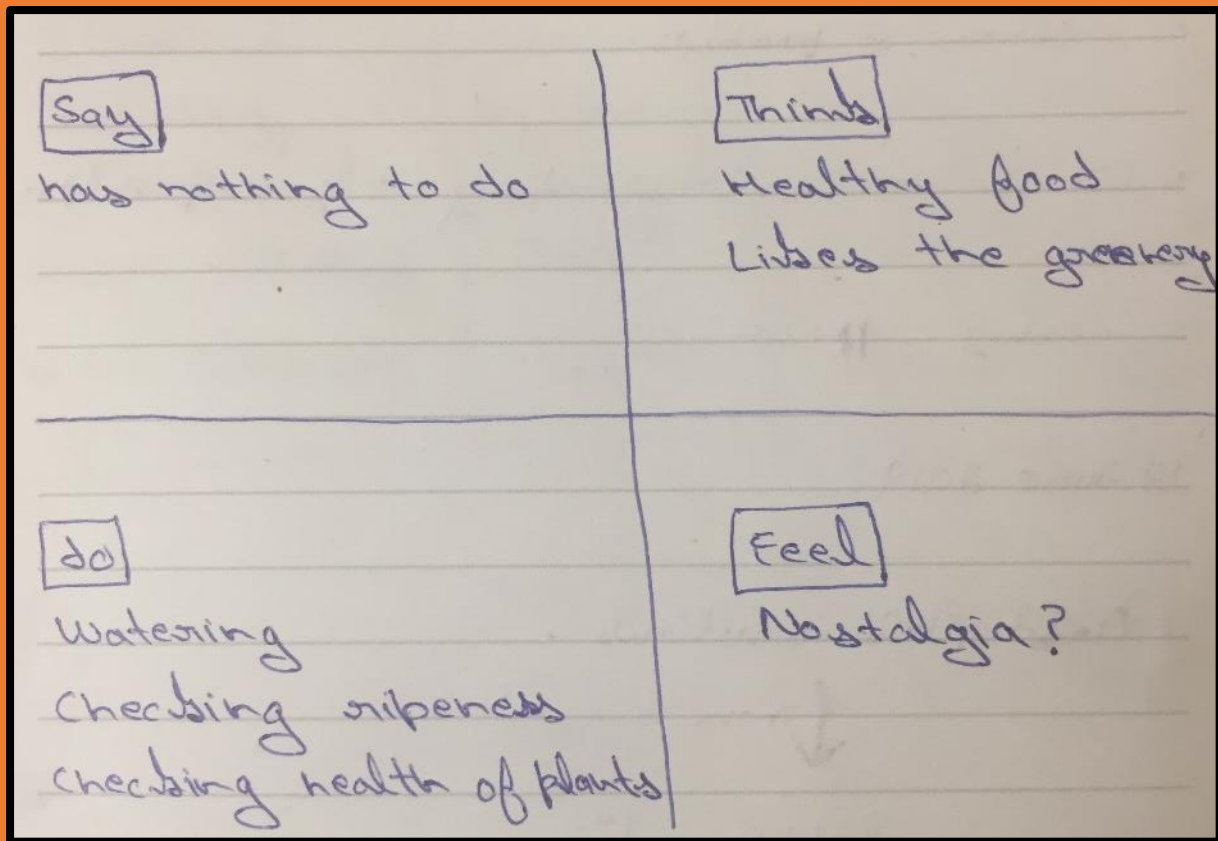 Say
has nothing to do
Think
Healthy food
Likes the greenery
do
Watering
Checking ripeness
Checking health of plants
Feel
Nostalgia?